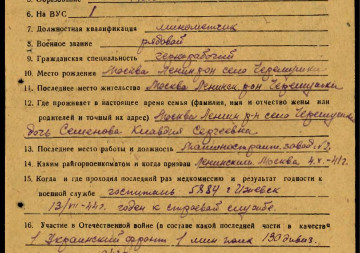 6. На ВУС 1
7. Должностная квалификация минометчик
8. Военное звание рядовой
9. Гражданская специальность
10. Место рождения Москва Ленин рон село Черемушки
11. Последнее место жительства Москва Ленинск рон Черемушки
12. Где проживает в настоящее время семья (фамилия, имя и отчество жены или
родителей и точный их адрес) Москва Ленин р-н село Черемушки
дочь Семенова Клавдия Сергеевна
13. Последнее место работы и должность завод №2,
14. Каким райгорвоенкоматом и когда призван Ленинским Москва 4.X-41г.
15. Когда и где проходил последний раз медкомиссию и результат годности к
военной службе госпиталь 5884 г. Ижевск
13/VII-42г. годен к строевой службе.
16. Участие в Отечественной войне (в составе какой последней части и в качестве
1 Украинский фронт 1 мин полк 130 дивиз.